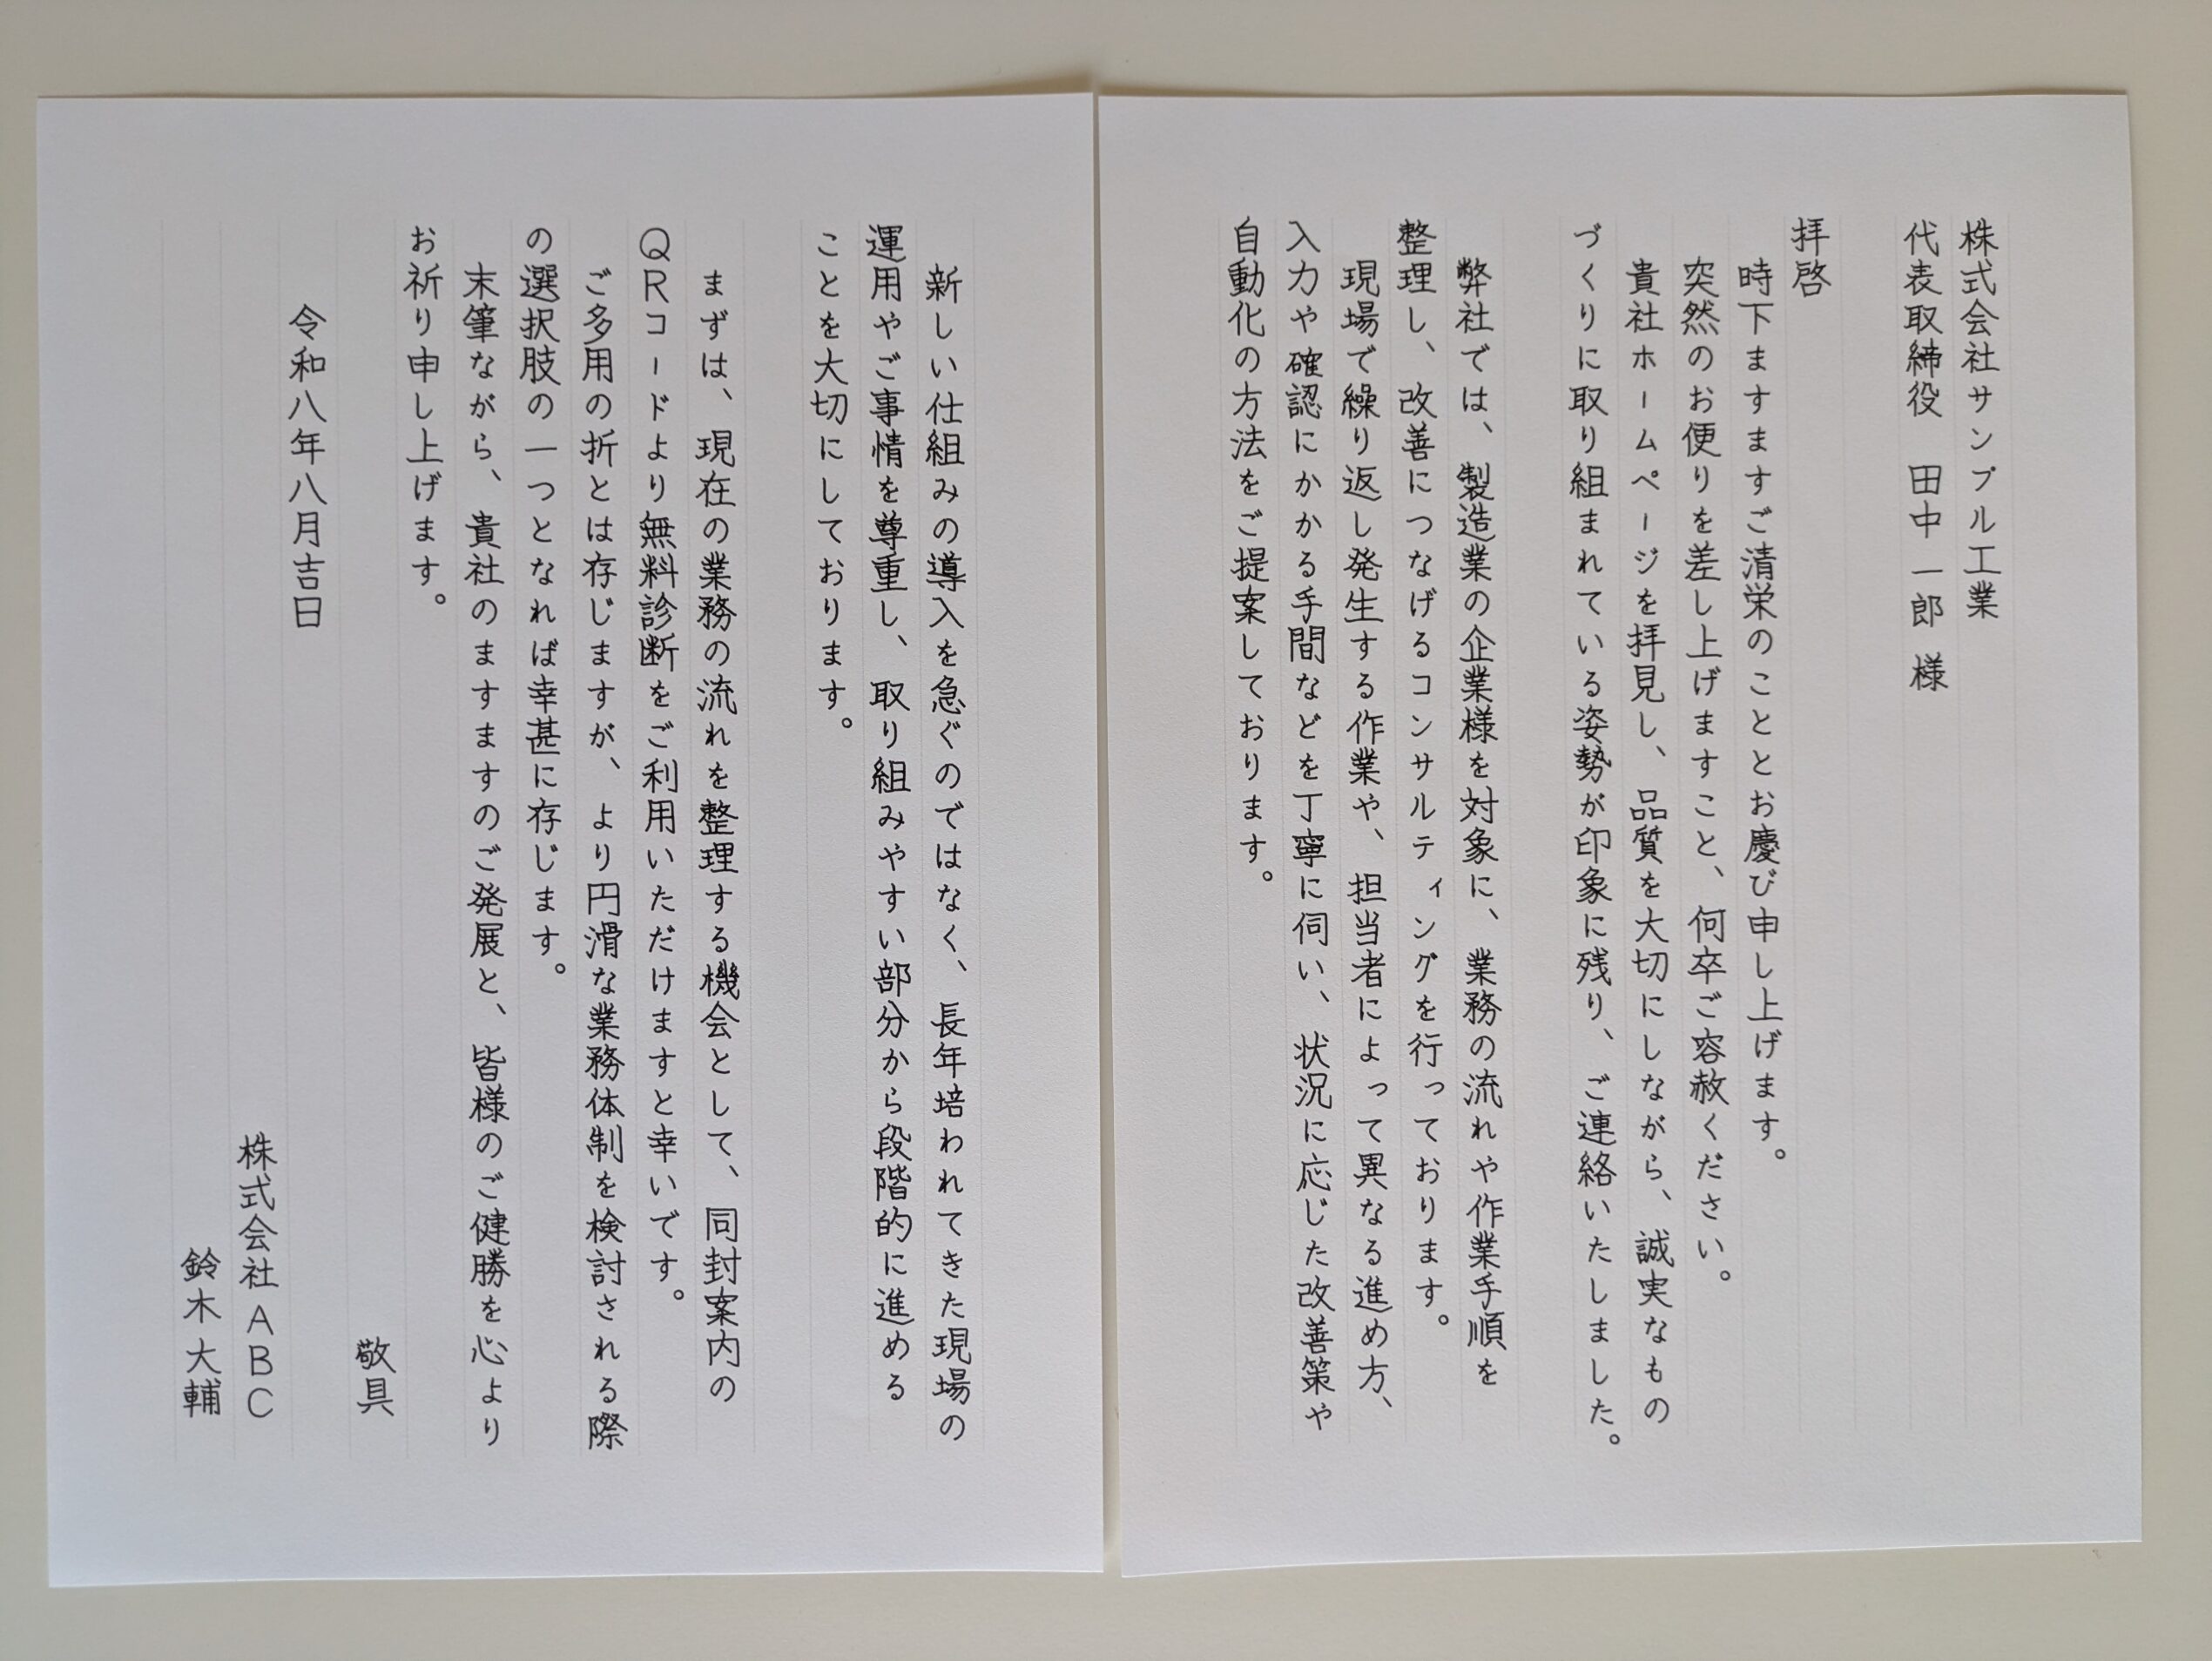 株式会社サンプル工業
代表取締役 田中一郎 様
拝啓
時下ますますご清栄のこととお慶び申し上げます。
突然のお便りを差し上げますこと、何卒ご容赦ください。
貴社ホームページを拝見し、品質を大切にしながら、誠実なもの
づくりに取り組まれている姿勢が印象に残り、ご連絡いたしました。
弊社では、製造業の企業様を対象に、業務の流れや作業手順を
整理し、改善につなげるコンサルティングを行っております。
現場で繰り返し発生する作業や、担当者によって異なる進め方、
入力や確認にかかる手間などを丁寧に伺い、状況に応じた改善策や
自動化の方法をご提案しております。
新しい仕組みの導入を急ぐのではなく、長年培われてきた現場の
運用やご事情を尊重し、取り組みやすい部分から段階的に進める
ことを大切にしております。
まずは、現在の業務の流れを整理する機会として、同封案内の
QRコードより無料診断をご利用いただけますと幸いです。
ご多用の折とは存じますが、より円滑な業務体制を検討される際
の選択肢の一つとなれば幸甚に存じます。
末筆ながら、貴社のますますのご発展と、皆様のご健勝を心より
お祈り申し上げます。
敬具
令和八年八月吉日
株式会社ABC
鈴木大輔